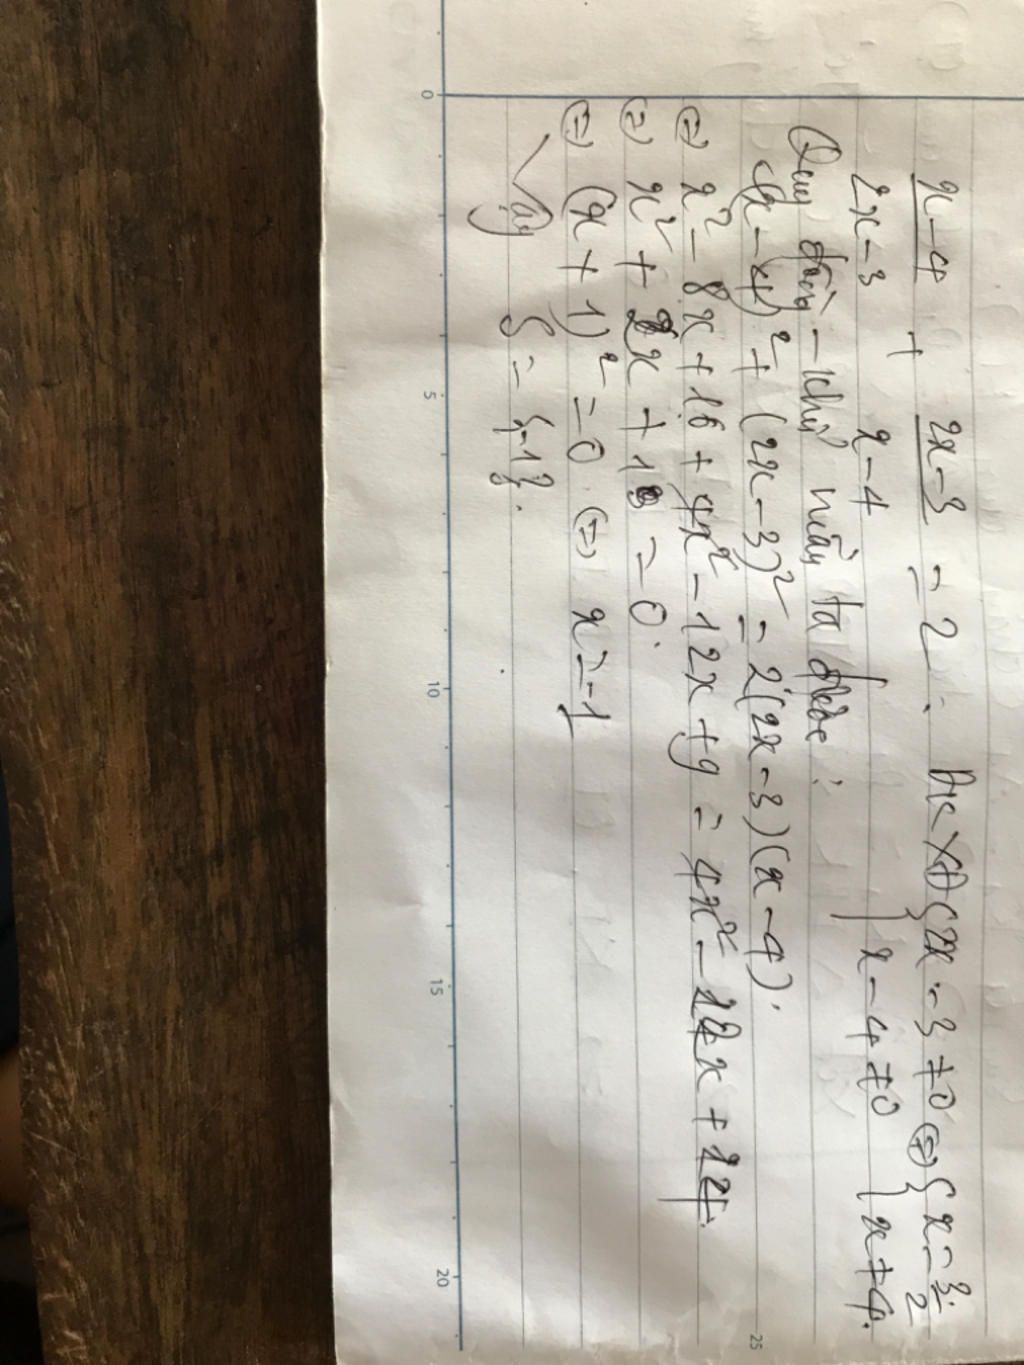 x-4/2x-3 + 2x-3/x-4 = 2. ĐKXĐ { 2x-3 ≠ 0 ; x-4 ≠ 0 (=) { x = 3/2 ; x ≠ 4.
Quy đồng - khử mẫu ta được :
(x-4)² + (2x-3)² = 2(2x-3)(x-4).
(=) x² - 8x + 16 + 4x² - 12x + 9 = 4x² - 22x + 24.
(=) x² + 2x + 1 = 0.
(=) (x+1)² = 0. (=) x = -1
Vậy S = {-1}.
0
5
10
15
20
25